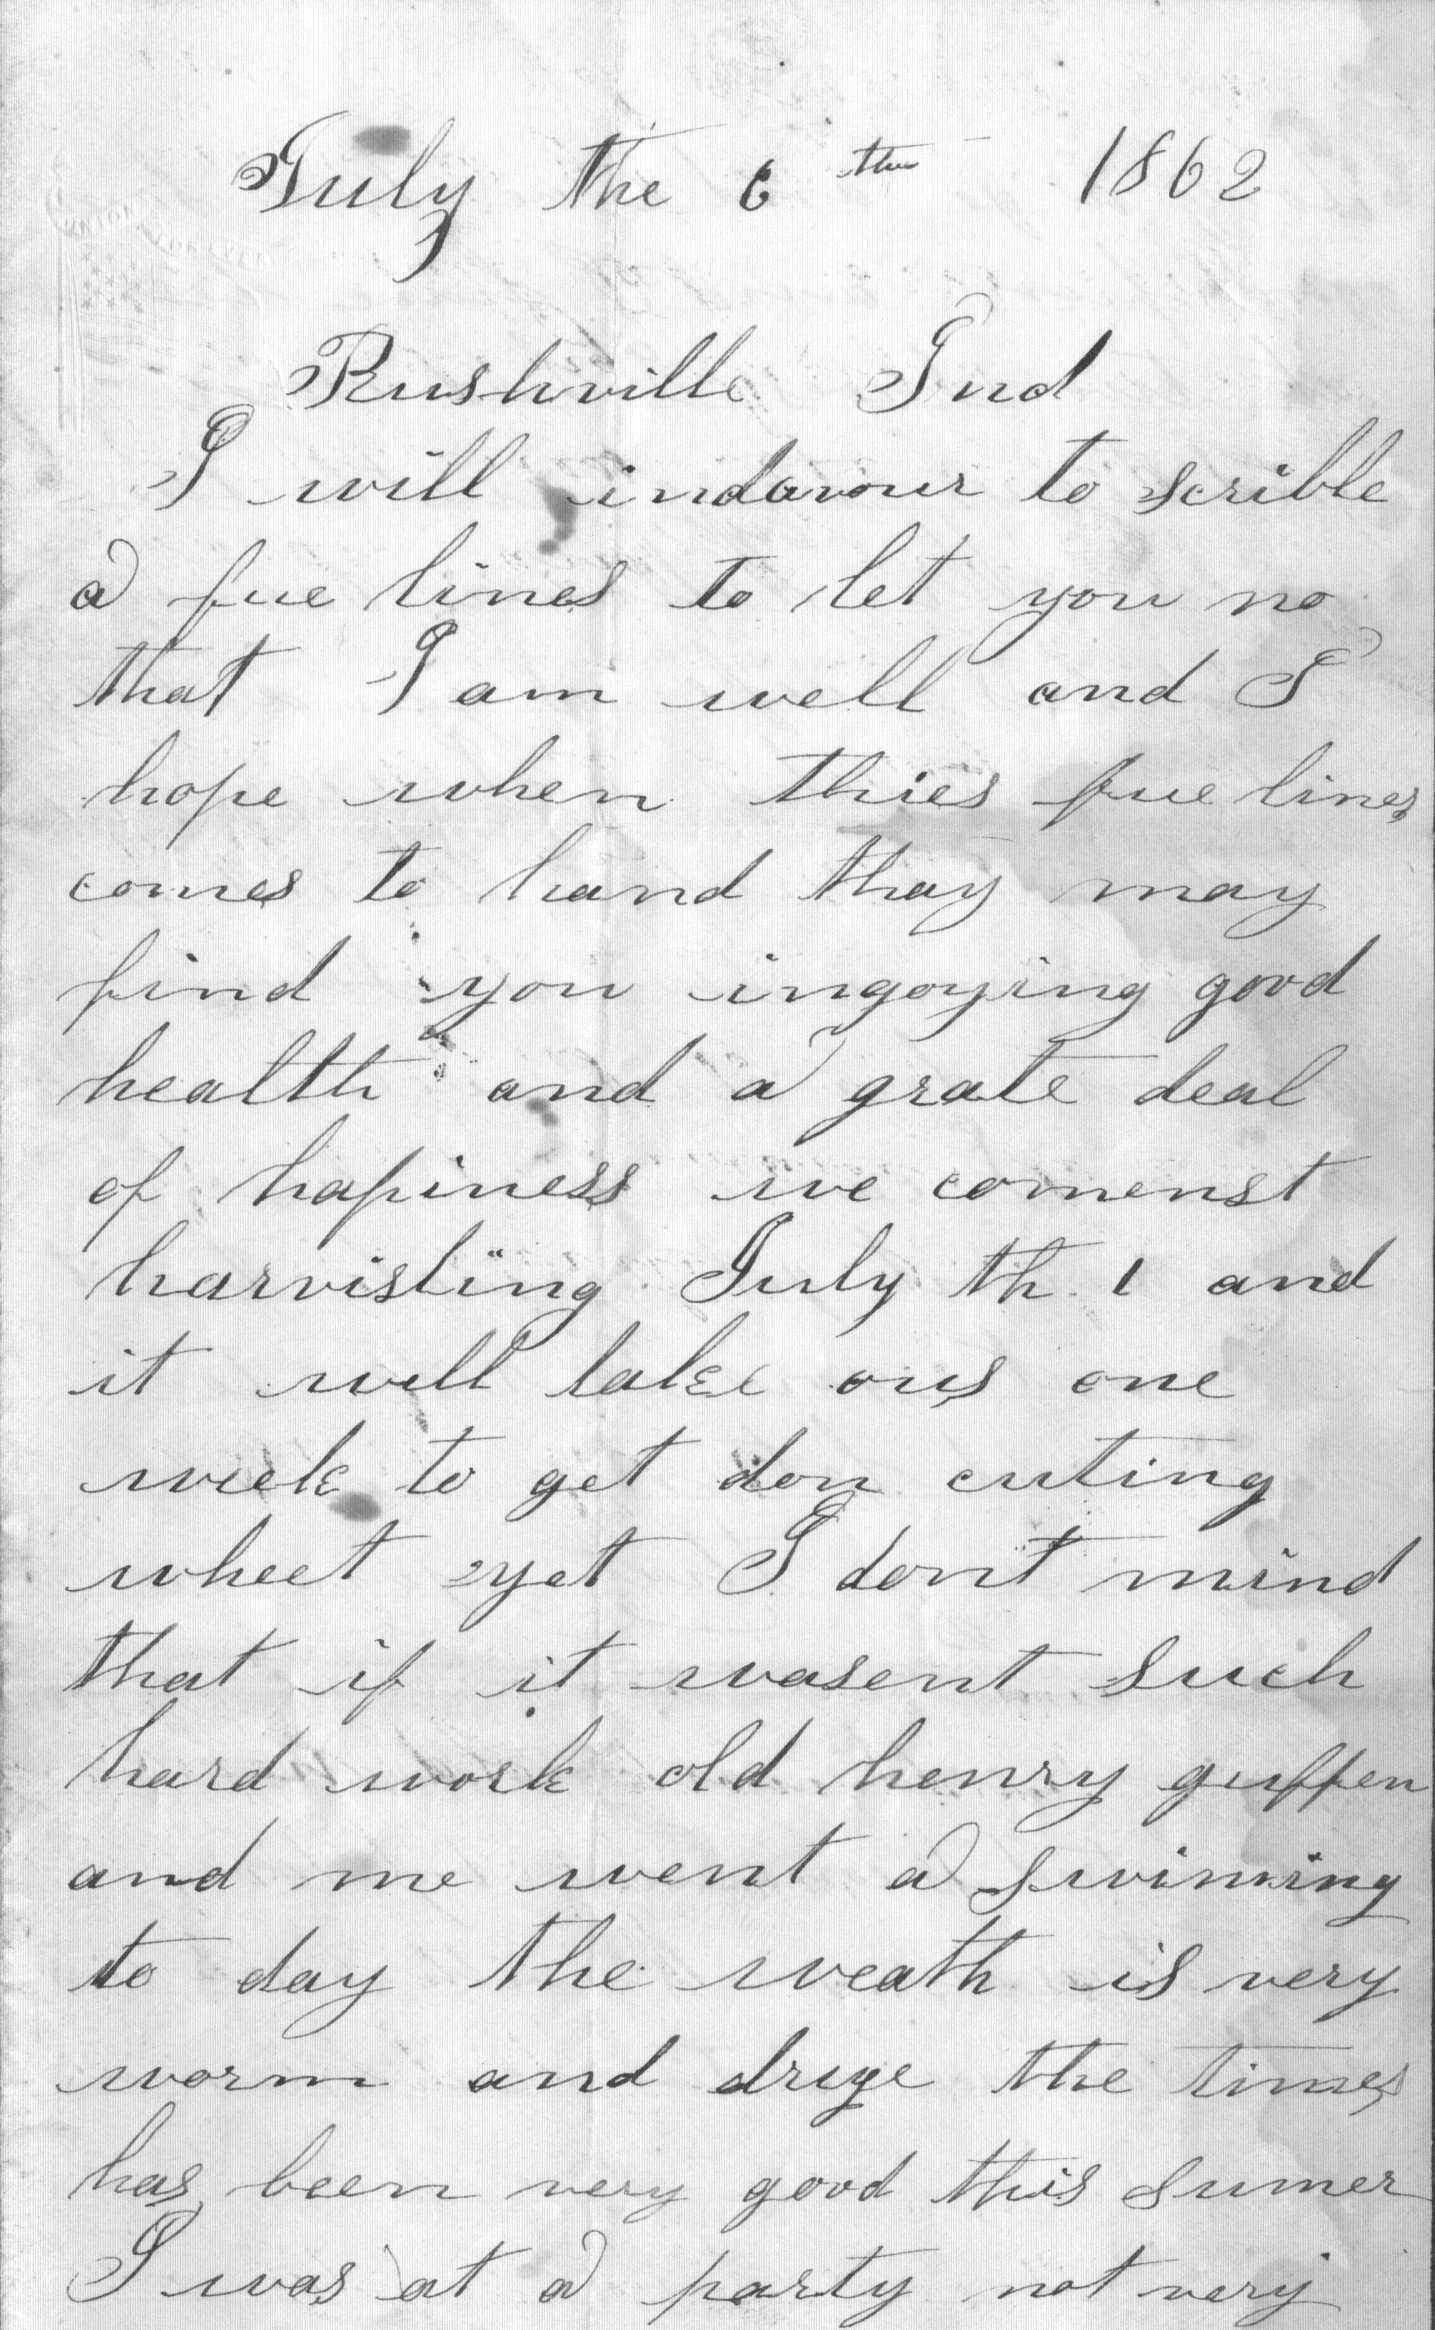 July the 6th 1862
Rushville Ind
I will indavour to scrible
a fue lines to let you no
that I am well and I
hope when thies fue lines
comes to hand thay may
find you ingoying good
health and a grate deal
of hapiness we comenst
harvisting July th 1 and
it will take ous one
week to get don cuting
wheet yet I dont mind
that if it wasent such
hard work old henry guffen
and me went a swiming
to day the weath is very
worm and drye the times
has been very good this sumer
I was at a party not very